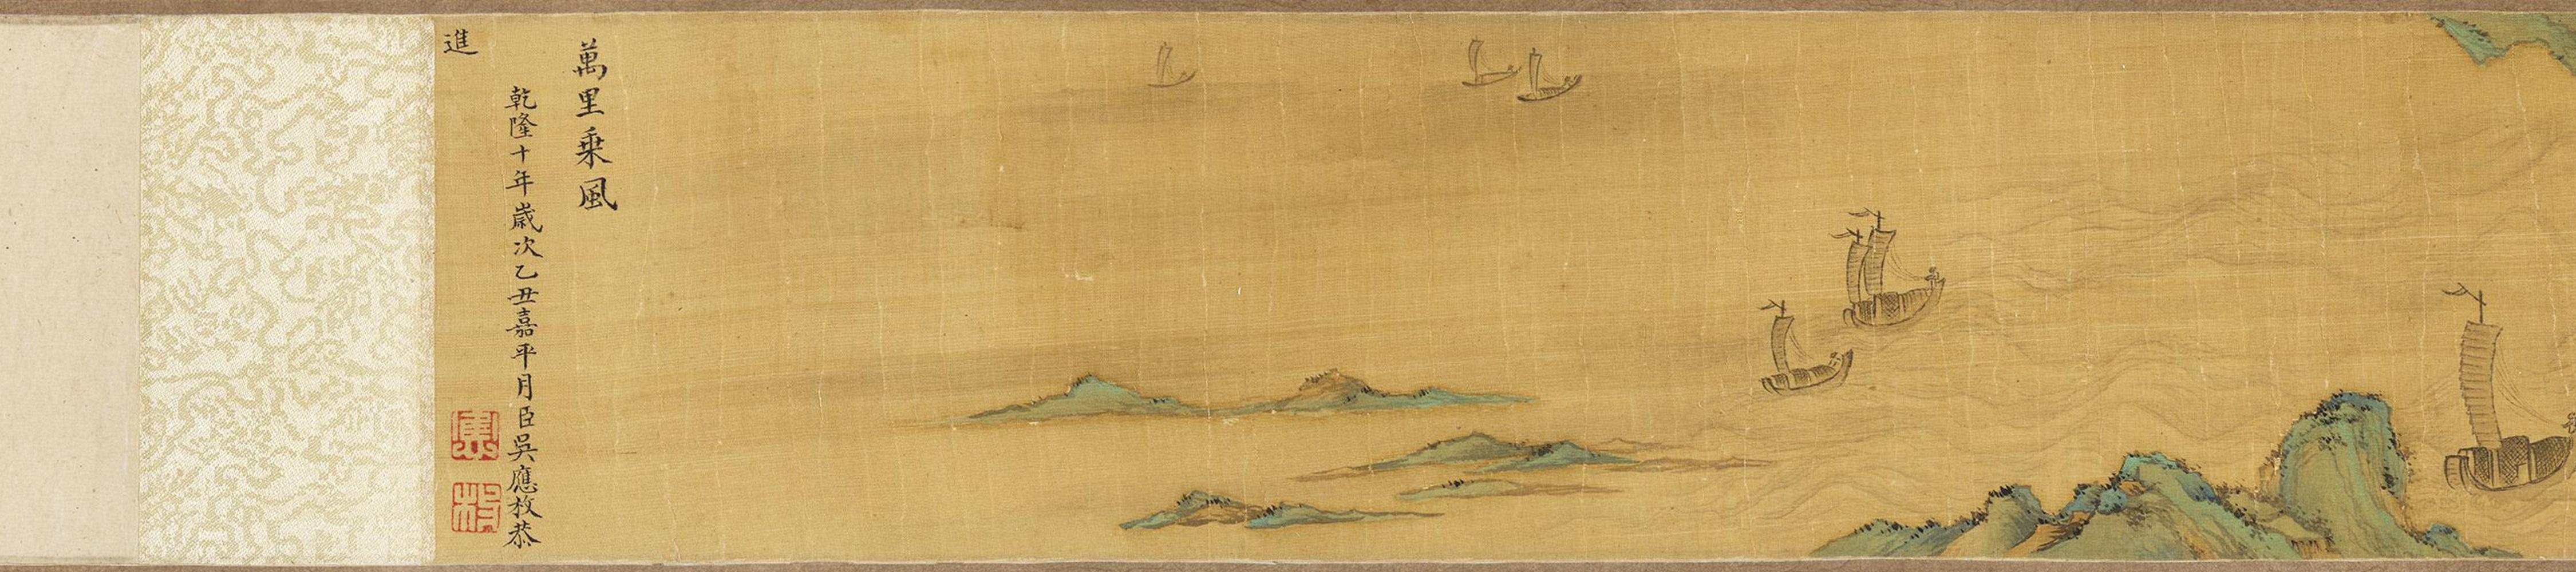 萬里乗風
乾隆十年歲次乙丑嘉平月臣吳應枚恭
進